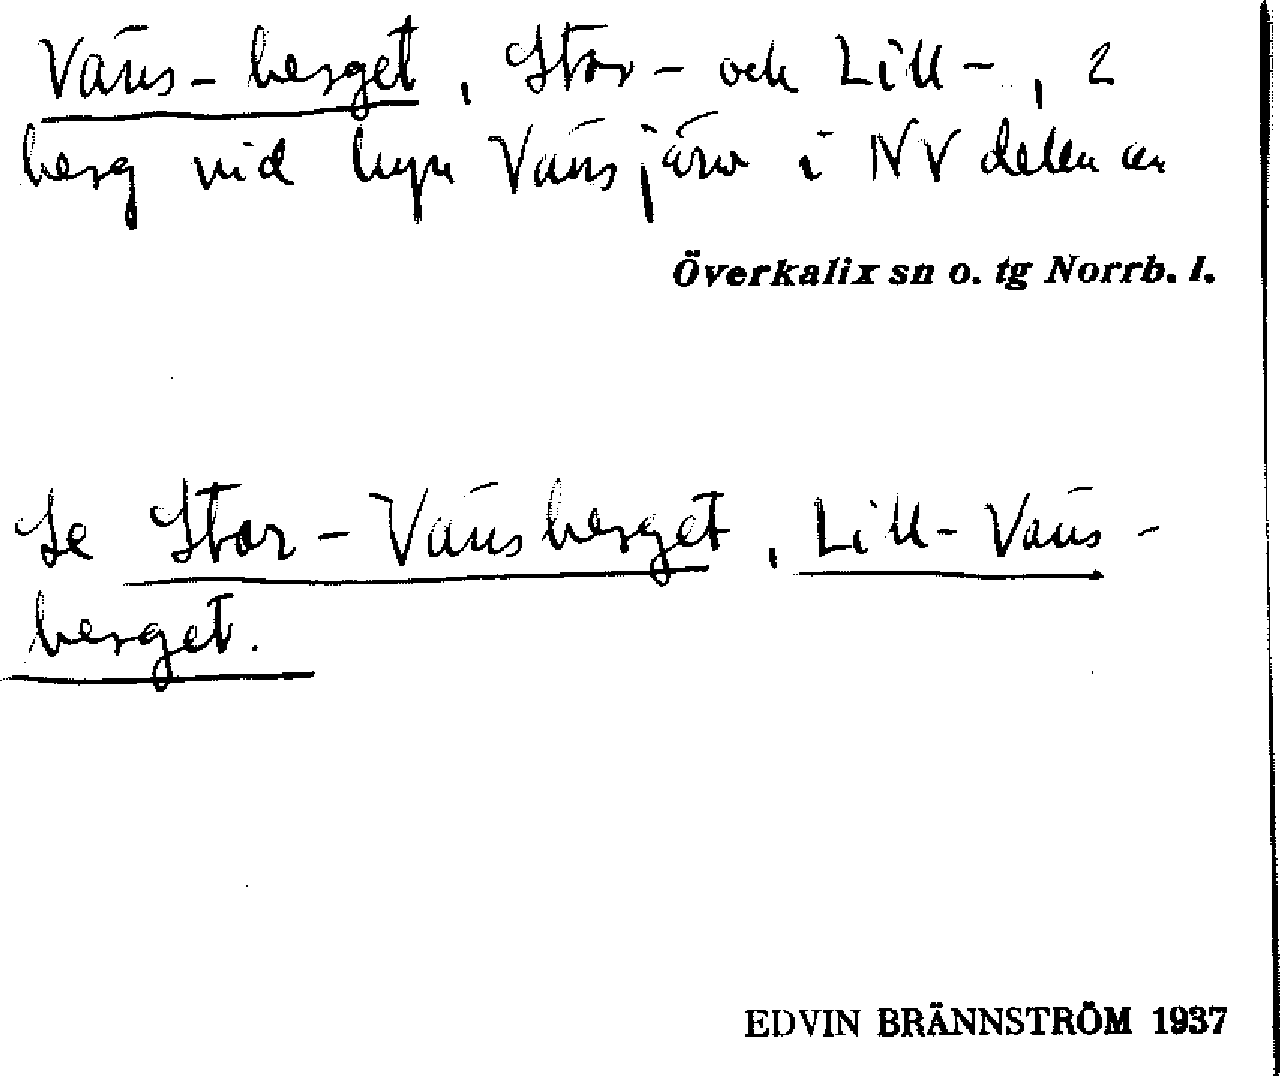 Väns-berget, Stor- och Lill-, 2
berg vid byn Vänsjärv i NV delen av
Överkalix sn o. tg Norrb. l.
Se Stor-Vänsberget, Lill-Väns-
berget.
EDVIN BRÄNNSTRÖM 1937